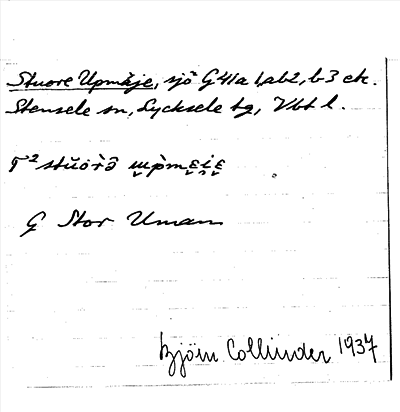 Stuore Upmäje, sjö G 41a 1,ab2, b3 etc.
Stensele sn, Lycksele tg, Vbt l.
stŭoꝛ̀ə̑ ɯ̮p̀m
G Stor Uman
Björn Collinder 1937